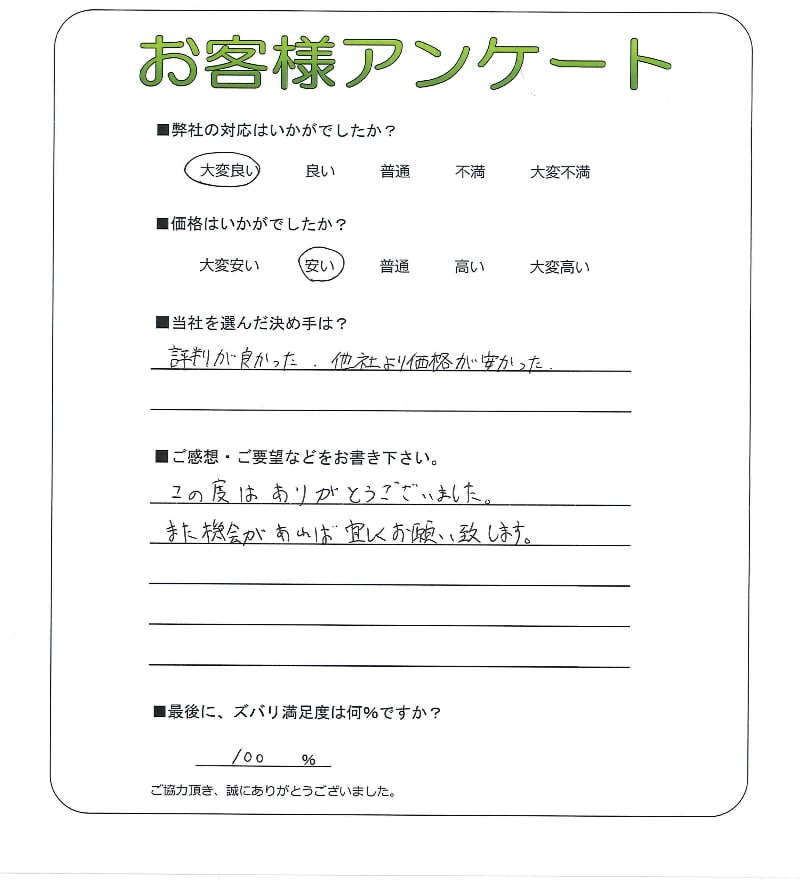 お客様アンケート
■弊社の対応はいかがでしたか？
大変良い 良い 普通 不満 大変不満
■価格はいかがでしたか？
大変安い 安い 普通 高い 大変高い
■当社を選んだ決め手は？
評判が良かった．他社より価格が安かった．
■ご感想・ご要望などをお書き下さい。
この度は ありがとうございました。
また機会があれば 宜しくお願い致します。
■最後に、ズバリ満足度は何%ですか？
100 %
ご協力頂き、誠にありがとうございました。